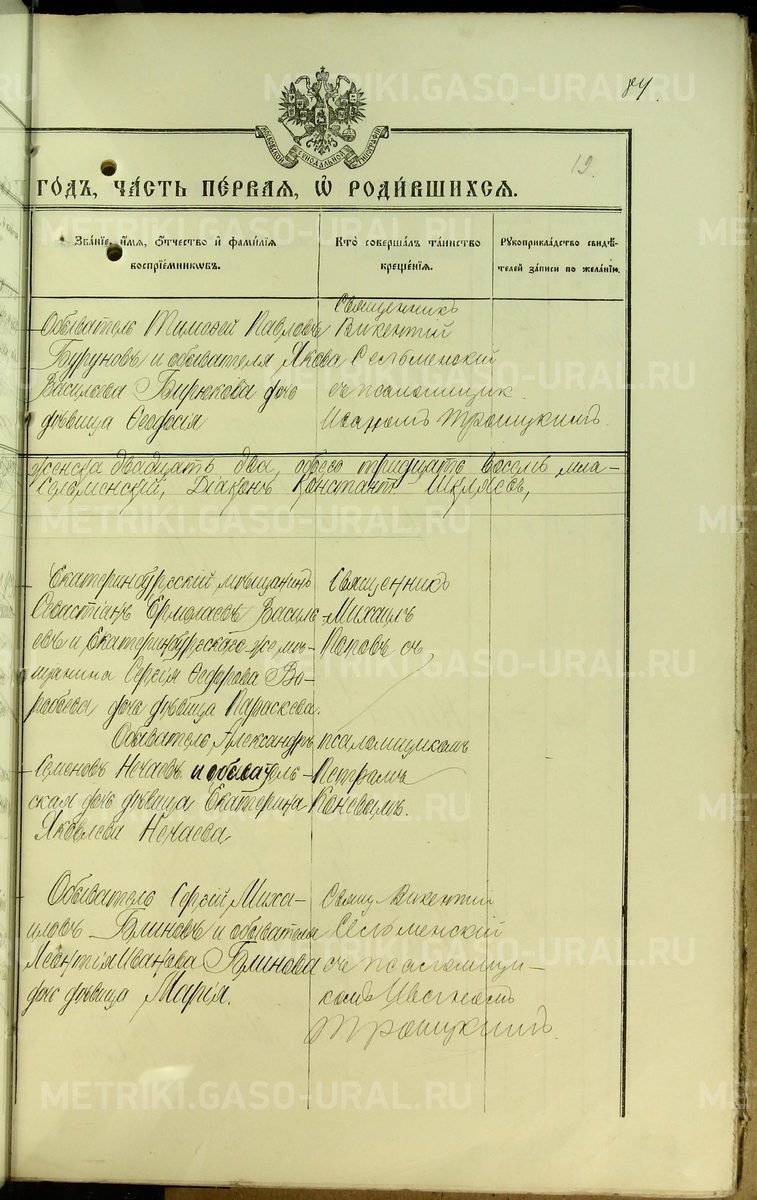 84.
МОСКОВСКОЙ СѴНОДАЛЬНОЙ ТИПОГРАФІИ
12.
ГО́ДЪ, ЧА́СТЬ ПЕ́РВАЯ, Ѡ҆ РОДИ́ВШИХСЯ.
Зва́ніе, и҆́мя, ѻ҆́тчество и҆ фами́лія
воспрїе́мникѡвъ.
Кто̀ соверша́лъ та́инство
креще́нїя.
Рꙋкоприкла́дство свидѣ́-
телей за́писи по жела́нїю.
Обыватель Тимофей Павловъ
Буруновъ и обывателя Якова
Васильева Бирюкова дочь
дѣвица Ѳеодосія
Священникъ
Викентій
Сельменскій
съ псаломщик.
Иваномъ Троицкимъ.
женска двадцать два, обоего тридцать восемь мла-
Діаконъ Констант.
Екатеринбургскій мѣщанинъ
Севастіанъ Ермолаевъ Василь
евъ и Екатеринбургскаго же мѣ-
щанина Сергія Ѳедорова Во-
робьева дочь дѣвица Параскева.
Священникъ
Михаилъ
Поповъ съ
Обыватель Александръ
Семеновъ Нечаевъ и обыватель-
ская дочь дѣвица Екатерина
Яковлева Нечаева
псаломщикомъ
Петромъ
Коневымъ.
Обыватель Сергій Миха-
иловъ Блиновъ и обывателя
Леонтія Иванова Блинова
дочь дѣвица Марія.
Свящ. Викентій
Сельменскій
съ псаломщи-
комъ Иваномъ
Троицкимъ.
METRIKI.GASO-URAL.RU